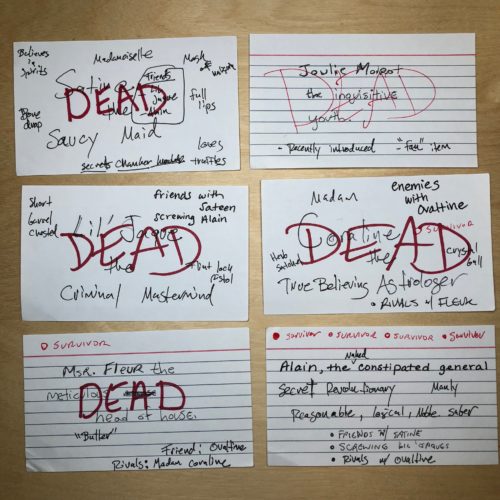 Believes
in
Spirits
Mademoiselle
Mask
Satine
friends
Lil Jacque
Alain
the
DEAD
full
lips
Saucy Maid
loves
truffles
secrets chamber
Joulie Moigot
the inquisitive
youth
DEAD
- Recently introduced
item
short
barrel
chested
friends with
Sateen
screwing
Alain
Lil' Jacque
the
DEAD
flint lock
Pistol
Criminal Mastermind
Madam
enemies
with
Ovaltine
Coraline
SURVIVOR
the
DEAD
Crystal
ball
True Believing Astrologer
• RIVALS w/ FLEUR
SURVIVOR
Msr. FLEUR the
head of house.
DEAD
"Butler"
Friend: Ovaltine
Rivals: Madam Coraline
Survivor SURVIVOR SURVIVOR Survivor
naked
Alain, the constipated general
Secret Revolutionary Manly
Reasonable, logical, Noble saber
• FRIENDS w/ SATINE
• SCREWING LIL' JACQUES
• Rivals w/ OVALTINE